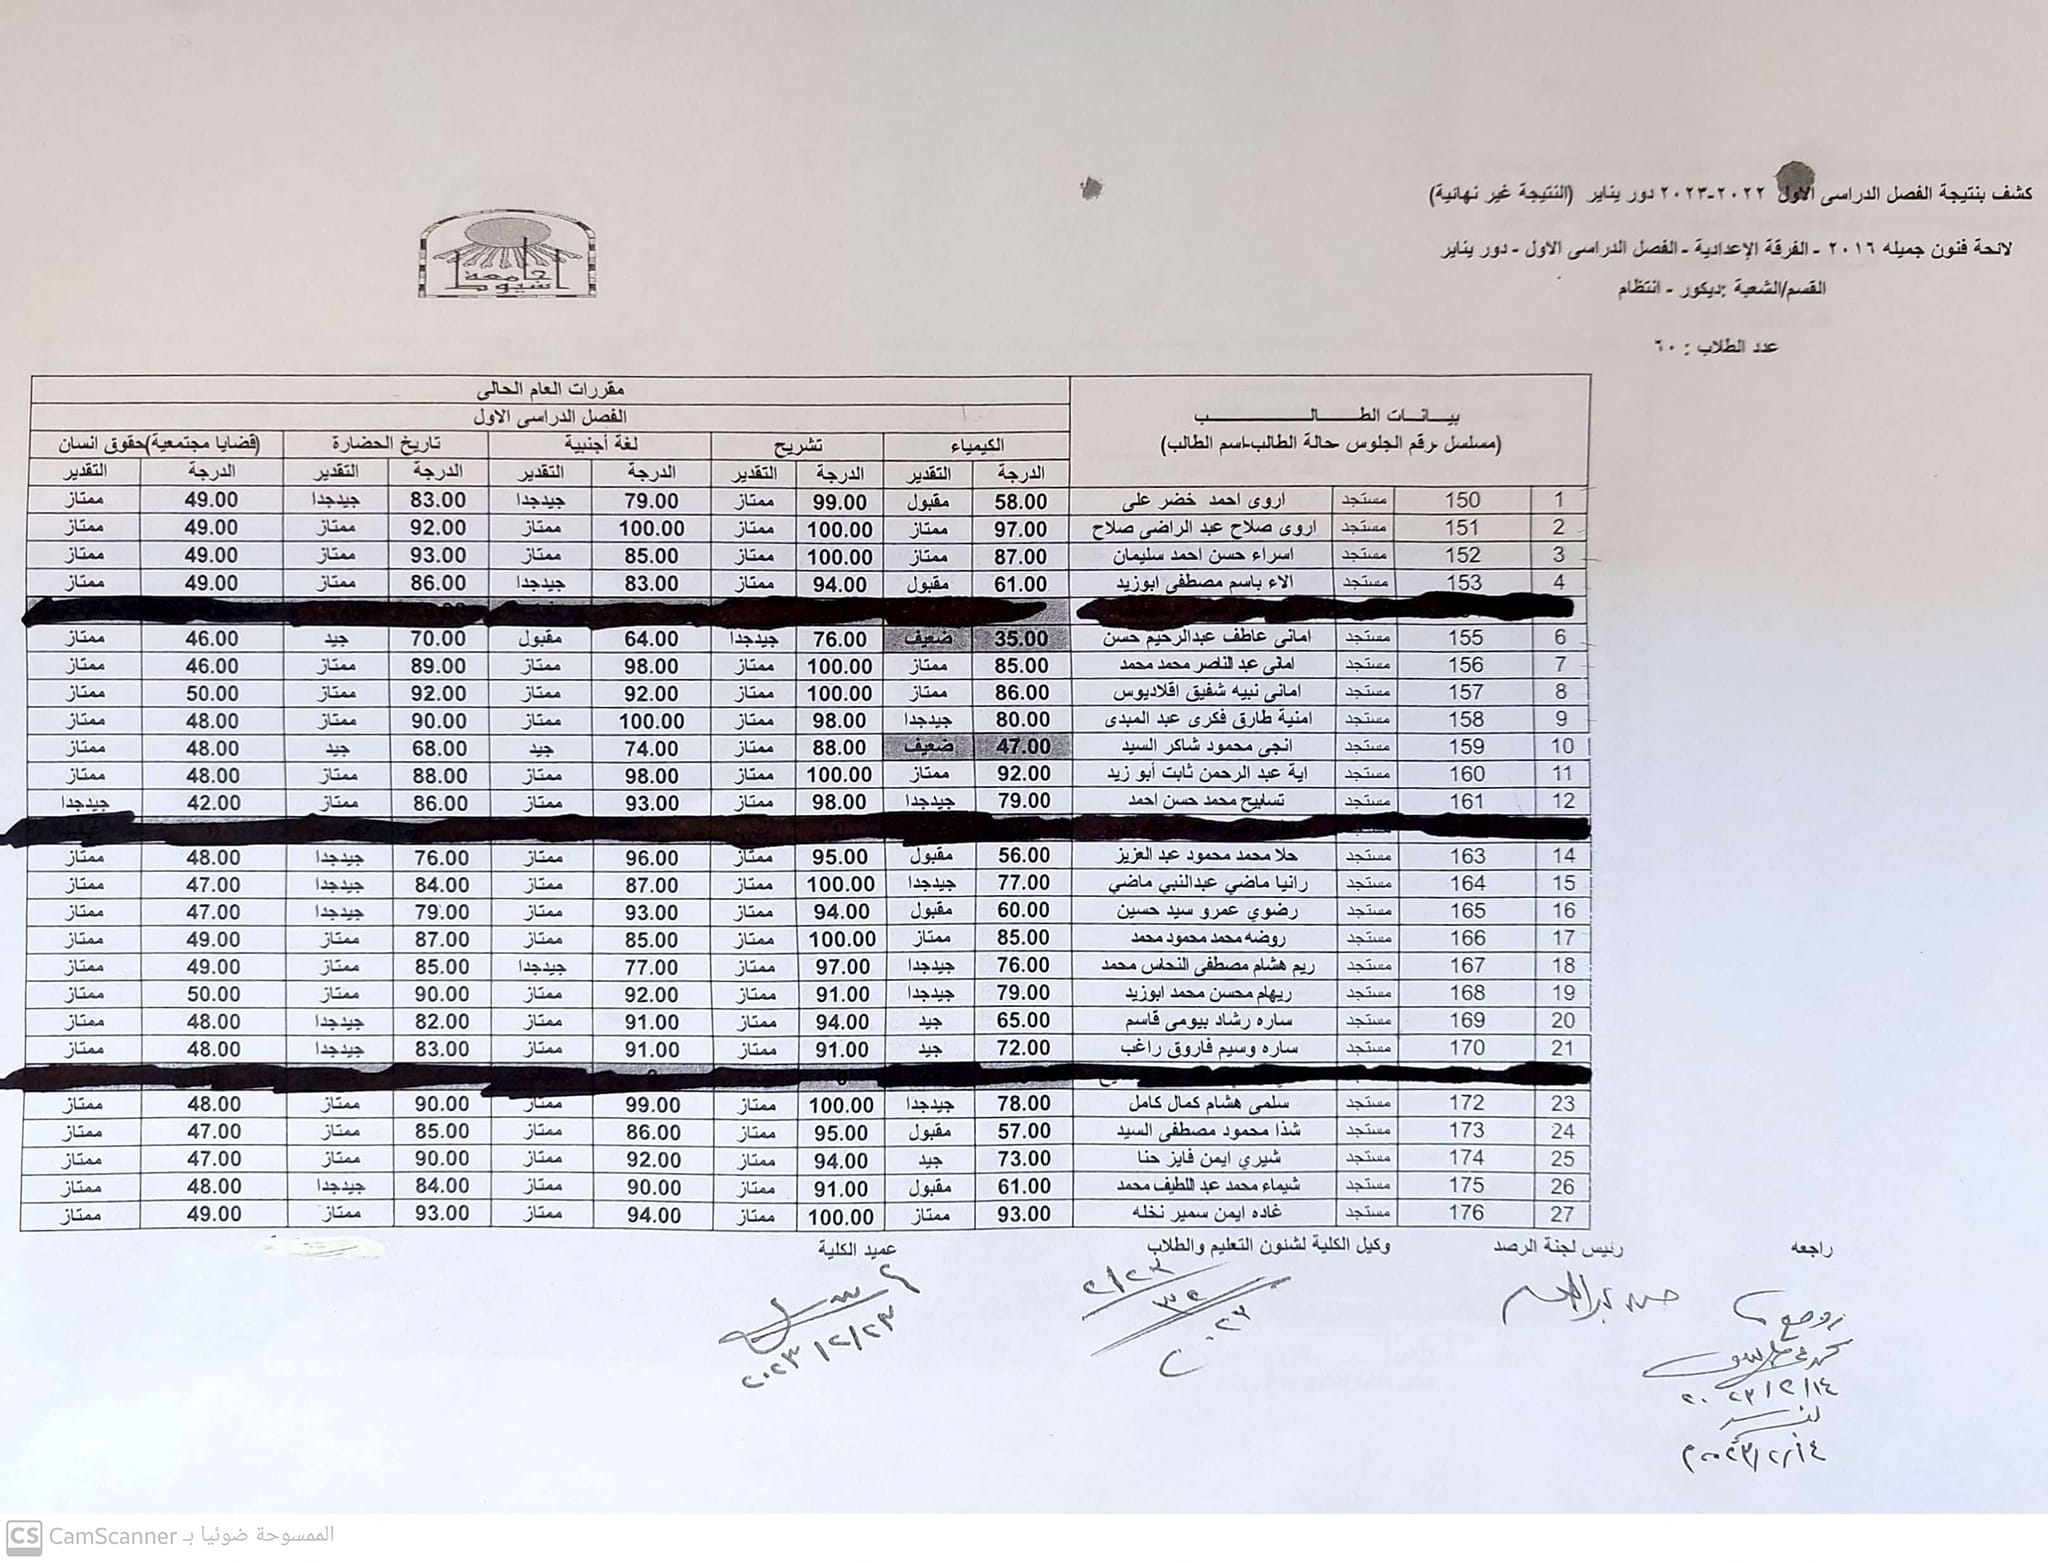 كشف بنتيجة الفصل الدراسى الاول ٢٠٢٢-٢٠٢٣ دور يناير (النتيجة غير نهائية)
لائحة فنون جميله ٢٠١٦ - الفرقة الإعدادية - الفصل الدراسى الاول - دور يناير
القسم/الشعبة :ديكور - انتظام
عدد الطلاب : ٦٠
جامعة اسيوط
بيـــانـــات الطـــالـــــــــــب
(مسلسل -رقم الجلوس -حالة الطالب-اسم الطالب)
مقررات العام الحالى
الفصل الدراسى الاول
الكيمياء تشريح لغة أجنبية تاريخ الحضارة (قضايا مجتمعية)حقوق انسان
الدرجة التقدير الدرجة التقدير الدرجة التقدير الدرجة التقدير الدرجة التقدير
1 150 مستجد اروى احمد خضر على 58.00 مقبول 99.00 ممتاز 79.00 جيدجدا 83.00 جيدجدا 49.00 ممتاز
2 151 مستجد اروى صلاح عبد الراضى صلاح 97.00 ممتاز 100.00 ممتاز 100.00 ممتاز 92.00 ممتاز 49.00 ممتاز
3 152 مستجد اسراء حسن احمد سليمان 87.00 ممتاز 100.00 ممتاز 85.00 ممتاز 93.00 ممتاز 49.00 ممتاز
4 153 مستجد الاء باسم مصطفى ابوزيد 61.00 مقبول 94.00 ممتاز 83.00 جيدجدا 86.00 ممتاز 49.00 ممتاز
6 155 مستجد امانى عاطف عبدالرحيم حسن 35.00 ضعيف 76.00 جيدجدا 64.00 مقبول 70.00 جيد 46.00 ممتاز
7 156 مستجد امانى عبد الناصر محمد محمد 85.00 ممتاز 100.00 ممتاز 98.00 ممتاز 89.00 ممتاز 46.00 ممتاز
8 157 مستجد امانى نبيه شفيق اقلاديوس 86.00 ممتاز 100.00 ممتاز 92.00 ممتاز 92.00 ممتاز 50.00 ممتاز
9 158 مستجد امنية طارق فكرى عبد المبدى 80.00 جيدجدا 98.00 ممتاز 100.00 ممتاز 90.00 ممتاز 48.00 ممتاز
10 159 مستجد انجى محمود شاكر السيد 47.00 ضعيف 88.00 ممتاز 74.00 جيد 68.00 جيد 48.00 ممتاز
11 160 مستجد اية عبد الرحمن ثابت أبو زيد 92.00 ممتاز 100.00 ممتاز 98.00 ممتاز 88.00 ممتاز 48.00 ممتاز
12 161 مستجد تسابيح محمد حسن احمد 79.00 جيدجدا 98.00 ممتاز 93.00 ممتاز 86.00 ممتاز 42.00 جيدجدا
14 163 مستجد حلا محمد محمود عبد العزيز 56.00 مقبول 95.00 ممتاز 96.00 ممتاز 76.00 جيدجدا 48.00 ممتاز
15 164 مستجد رانيا ماضي عبدالنبي ماضي 77.00 جيدجدا 100.00 ممتاز 87.00 ممتاز 84.00 جيدجدا 47.00 ممتاز
16 165 مستجد رضوي عمرو سيد حسين 60.00 مقبول 94.00 ممتاز 93.00 ممتاز 79.00 جيدجدا 47.00 ممتاز
17 166 مستجد روضه محمد محمود محمد 85.00 ممتاز 100.00 ممتاز 85.00 ممتاز 87.00 ممتاز 49.00 ممتاز
18 167 مستجد ريم هشام مصطفى النحاس محمد 76.00 جيدجدا 97.00 ممتاز 77.00 جيدجدا 85.00 ممتاز 49.00 ممتاز
19 168 مستجد ريهام محسن محمد ابوزيد 79.00 جيدجدا 91.00 ممتاز 92.00 ممتاز 90.00 ممتاز 50.00 ممتاز
20 169 مستجد ساره رشاد بيومى قاسم 65.00 جيد 94.00 ممتاز 91.00 ممتاز 82.00 جيدجدا 48.00 ممتاز
21 170 مستجد ساره وسيم فاروق راغب 72.00 جيد 91.00 ممتاز 91.00 ممتاز 83.00 جيدجدا 48.00 ممتاز
23 172 مستجد سلمى هشام كمال كامل 78.00 جيدجدا 100.00 ممتاز 99.00 ممتاز 90.00 ممتاز 48.00 ممتاز
24 173 مستجد شذا محمود مصطفى السيد 57.00 مقبول 95.00 ممتاز 86.00 ممتاز 85.00 ممتاز 47.00 ممتاز
25 174 مستجد شيري ايمن فايز حنا 73.00 جيد 94.00 ممتاز 92.00 ممتاز 90.00 ممتاز 47.00 ممتاز
26 175 مستجد شيماء محمد عبد اللطيف محمد 61.00 مقبول 91.00 ممتاز 90.00 ممتاز 84.00 جيدجدا 48.00 ممتاز
27 176 مستجد غاده ايمن سمير نخله 93.00 ممتاز 100.00 ممتاز 94.00 ممتاز 93.00 ممتاز 49.00 ممتاز
راجعه رئيس لجنة الرصد وكيل الكلية لشئون التعليم والطلاب عميد الكلية
٢٠٢٣/٢/٢٣
٢٠٢٣/٢/١٤
٢٠٢٣/٢/١٤
CS CamScanner الممسوحة ضوئيا بـ